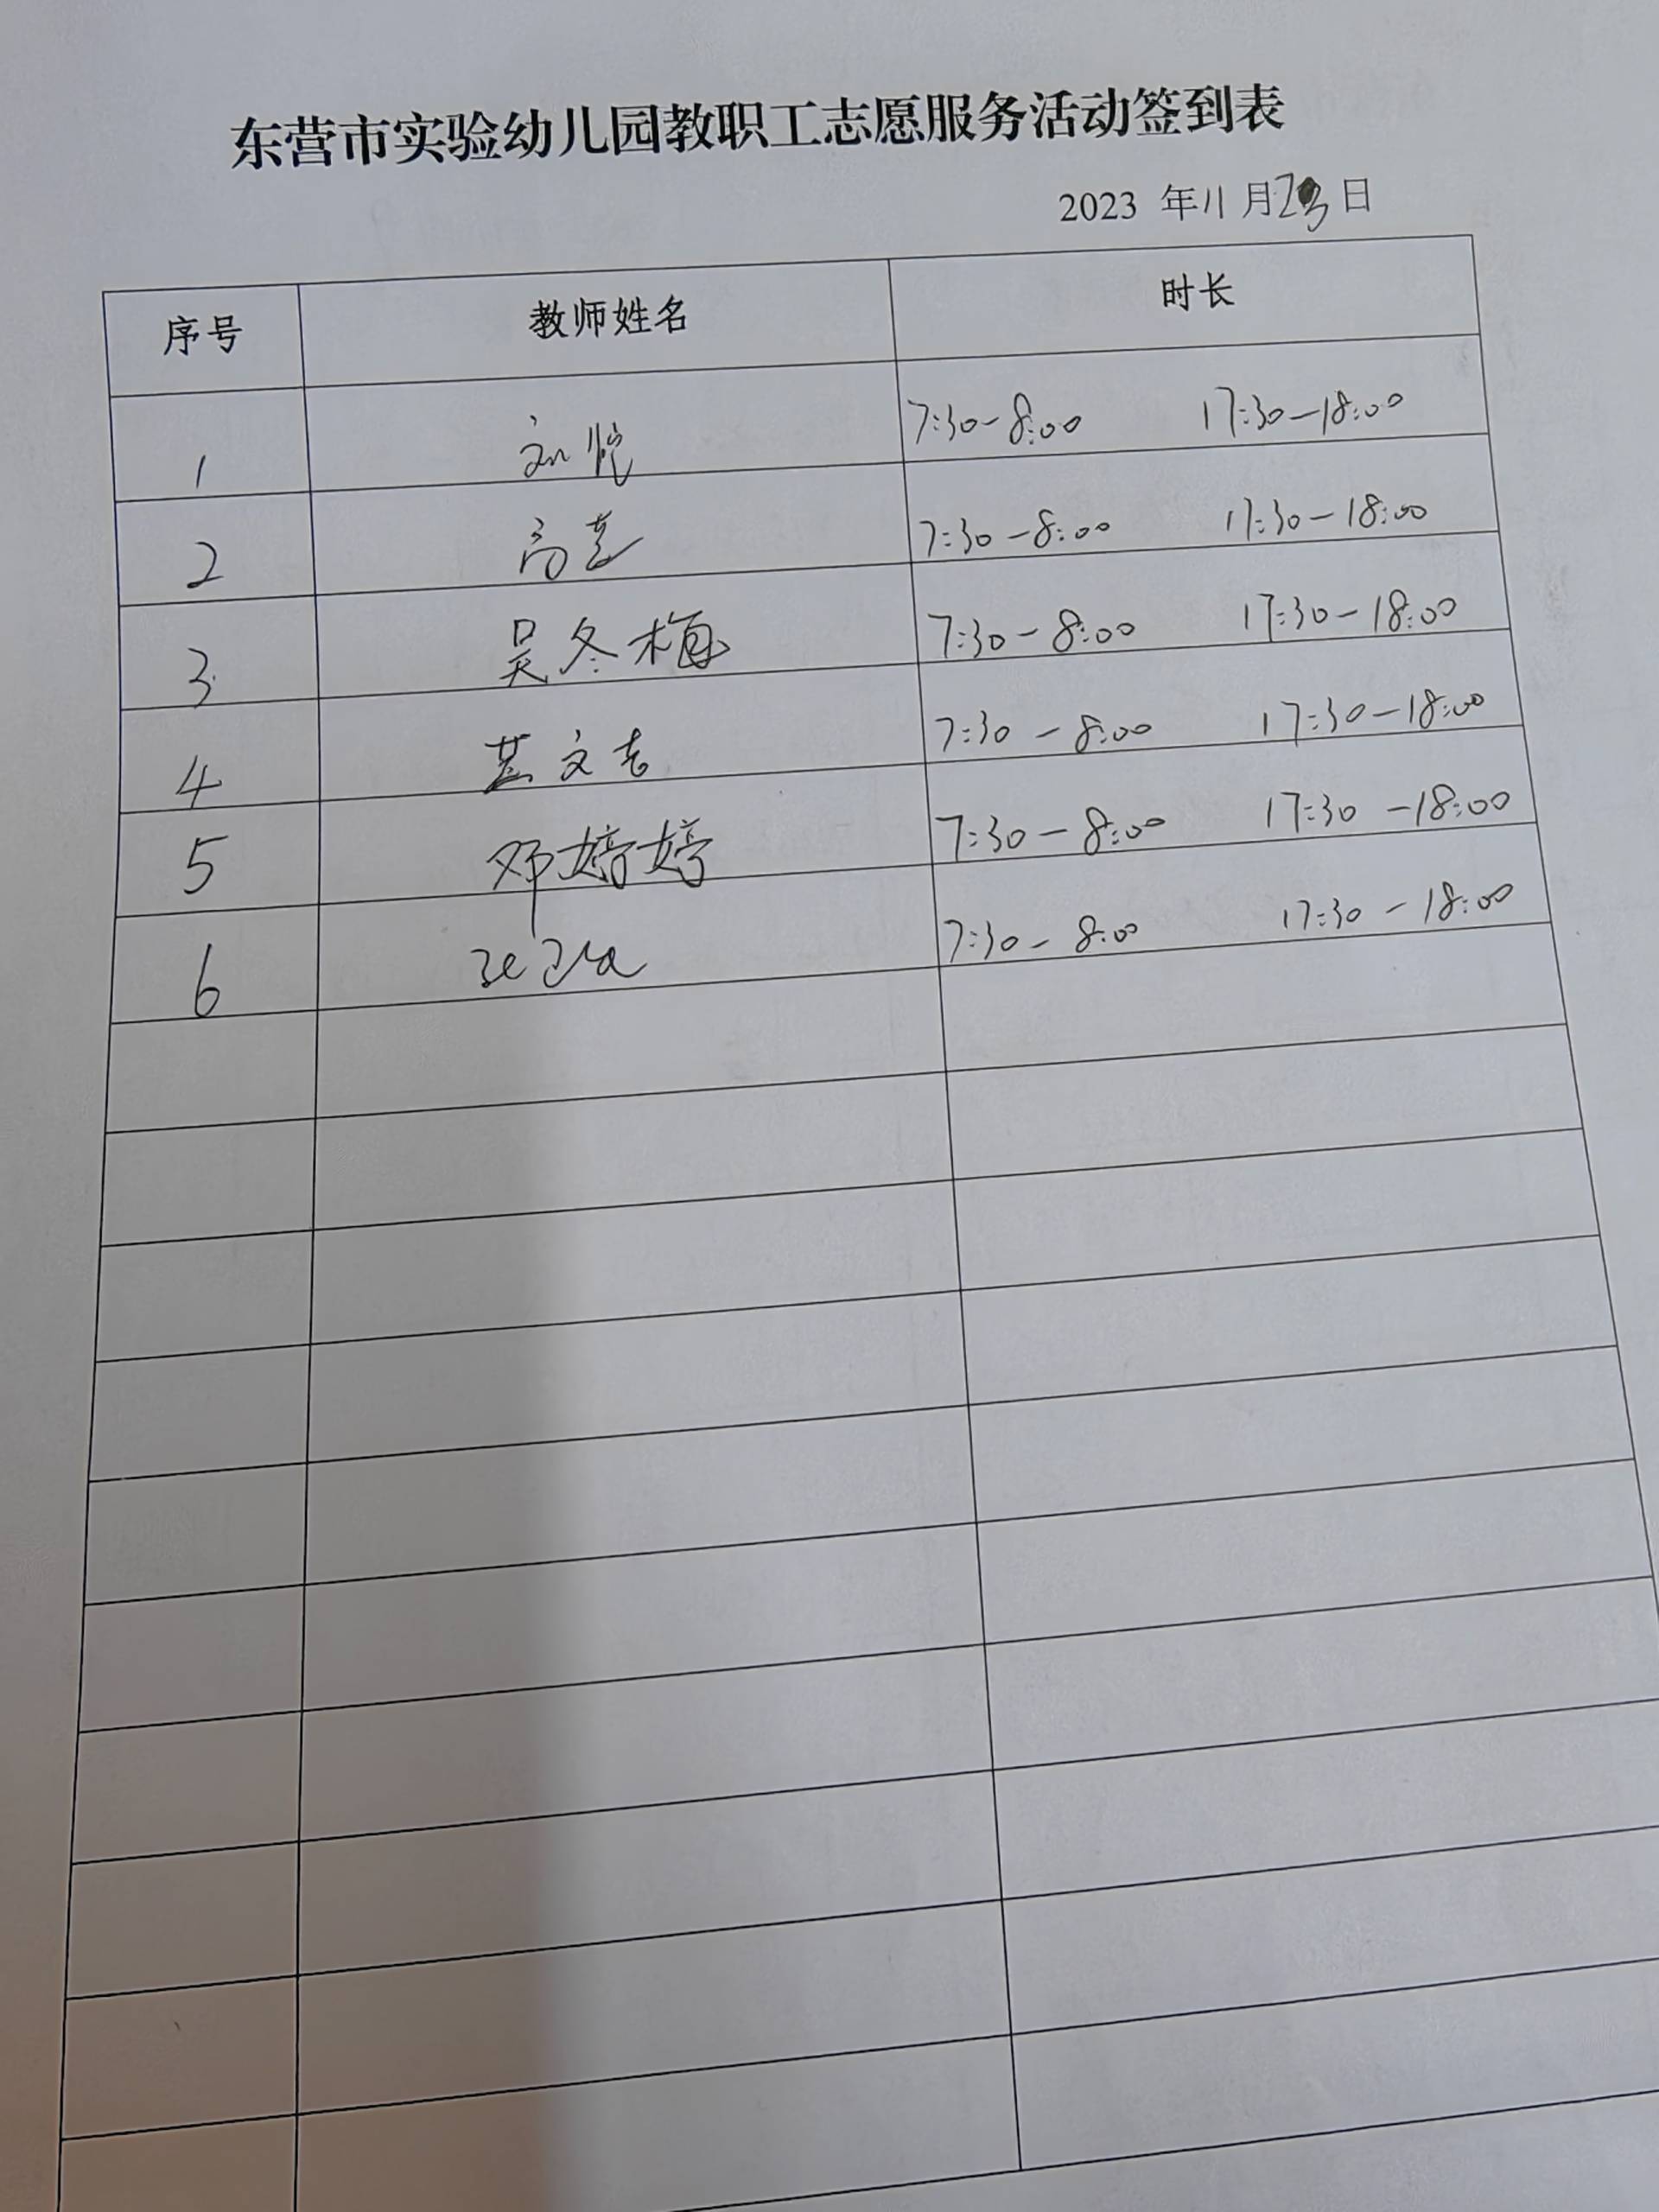 东营市实验幼儿园教职工志愿服务活动签到表
2023 年 11 月 23 日
序号 教师姓名 时长
1 刘悦 7:30-8:00 17:30-18:00
2 高 7:30-8:00 17:30-18:00
3 吴冬梅 7:30-8:00 17:30-18:00
4 文 7:30-8:00 17:30-18:00
5 邓婷婷 7:30-8:00 17:30-18:00
6 7:30-8:00 17:30-18:00